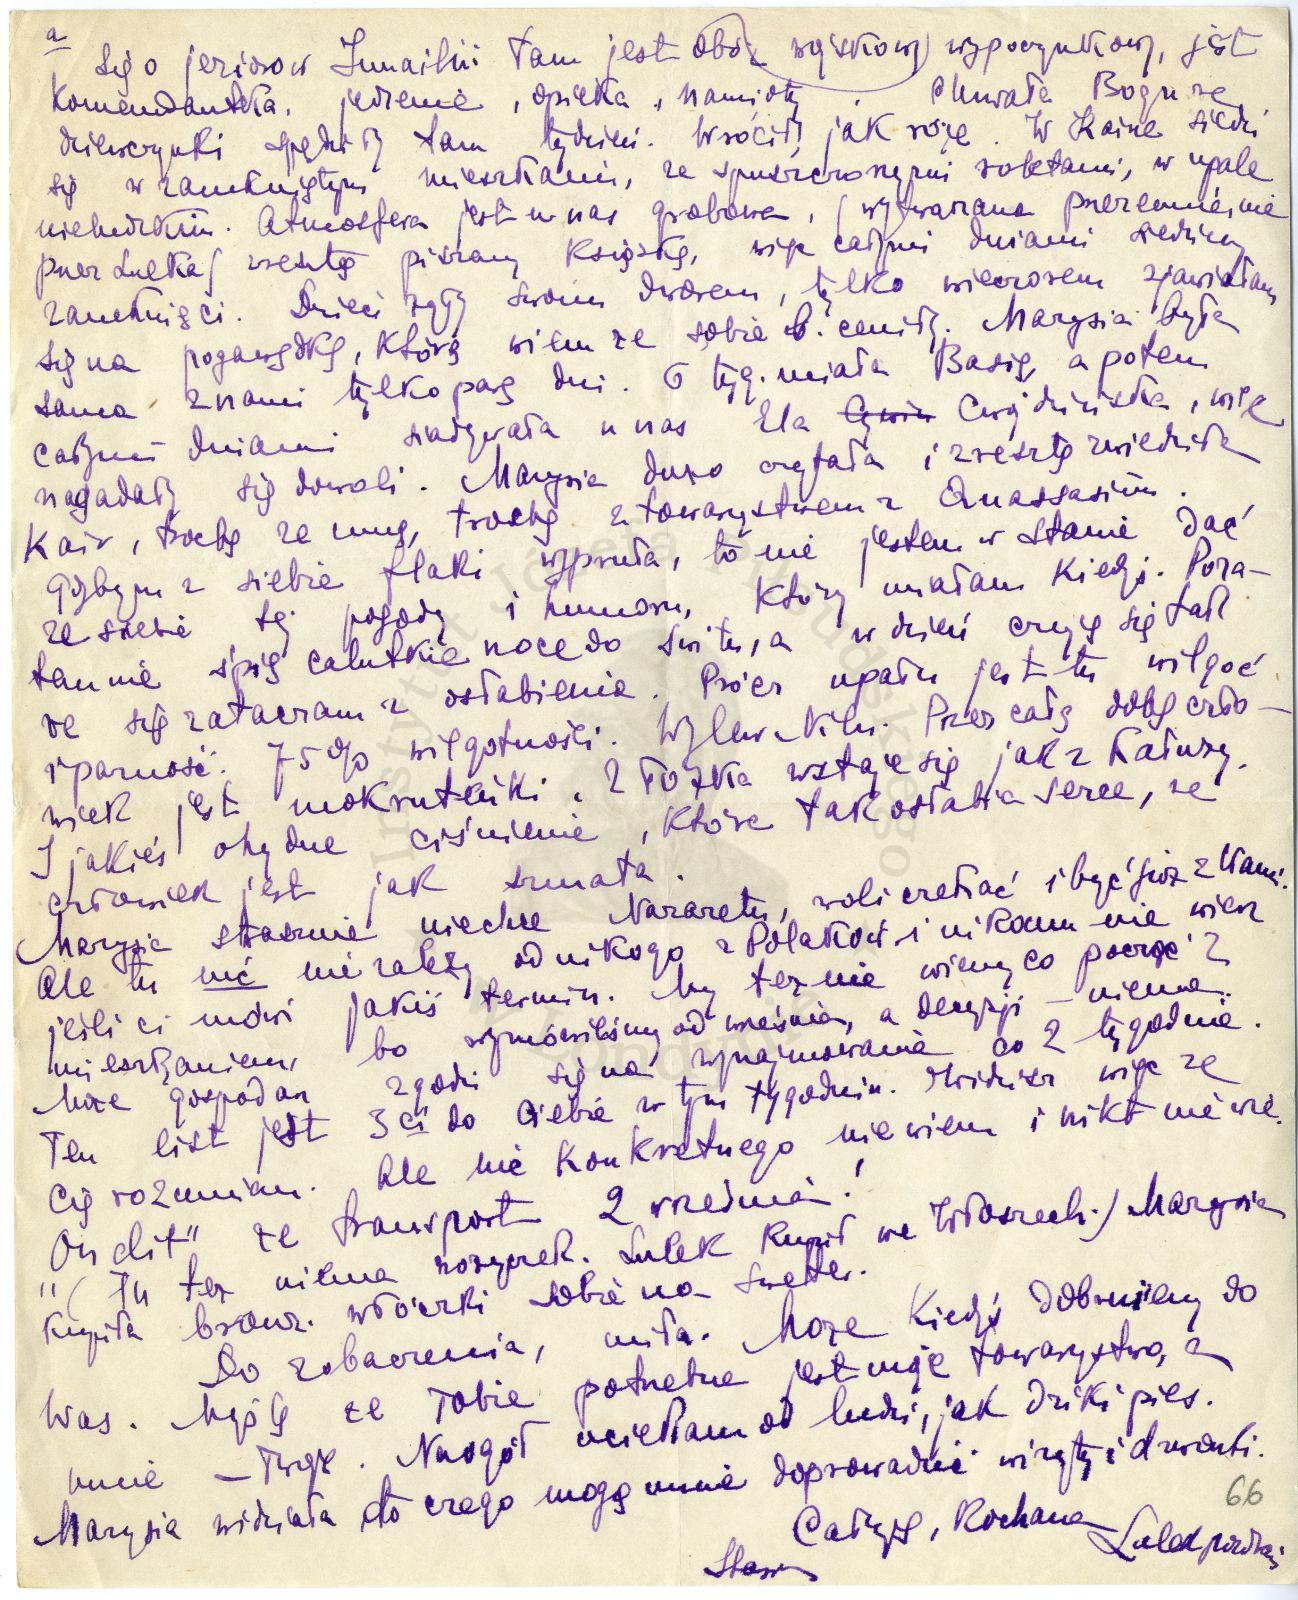 a
się o jezioro w Ismailii tam jest obóz wojskowy wypoczynkowy, jest
Komendantka, jedzenie, opieka, namioty. Chwała Bogu że
dziewczynki spędziły tam tydzień. Wróciły jak róże. W Kairze siedzi
się w zamkniętym mieszkaniu, ze spuszczonymi roletami, w upale
nieludzkim. Atmosfera jest u nas grobowa, (wytwarzana przezemnie, nie
przez Lulka) zresztą piszemy książkę, więc całymi dniami siedzimy
zamknięci. Dzieci żyły swoim dworem, tylko wieczorem zjawiałam
się na pogawędkę, którą wiem że sobie b. ceniły. Marysia była
sama z nami tylko parę dni. 6 tyg. miała Basię, a potem
całymi dniami siadywała u nas Ela Ćwiździńska, więc
nagadały się dowoli. Marysia dużo czytała i zresztą zwiedziła
Kair, trochę ze mną, trochę z towarzystwem z Quassasinu.
Gdybym z siebie flaki wypruła, to nie jestem w stanie dać
ze siebie tej pogody i humoru, który miałam kiedyś. Poza-
tem nie śpię calutkie noce do świtu, a w dzień czuję się tak
że się zataczam z osłabienia. Prócz upału jest tu wilgoć
i parność. 75% wilgotności. Wylew Nilu. Przez całą dobę czło-
wiek jest mokruteńki, z łóżka wstaje się jak z kałuży.
I jakieś ohydne ciśnienie, które tak osłabia serce, że
człowiek jest jak szmata.
Marysia strasznie nie chce Nazaretu, woli czekać i być już z Wami.
Ale tu nic nie zależy od nikogo z Polaków i nikomu nie wierz
jeśli ci mówi jakiś termin. My też nie wiemy co począć z
mieszkaniem, bo wymówiliśmy od września, a decyzji – niema.
Może gospodarz zgodzi się na wynajmowanie co 2 tygodnie.
Ten list jest 3ci do Ciebie w tym tygodniu. Widzisz więc że
Cię rozumiem. Ale nic konkretnego nie wiem i nikt nie wie.
"On dit" że transport 2 września!
(Tu też niema nożyczek. Lulek kupił we Włoszech.) Marysia
kupiła bronz. włóczki sobie na sweter.
Do zobaczenia, miła. Może kiedyś dobrniemy do
Was. Myślę że Tobie potrzebne jest moje towarzystwo, a
mnie – Twoje. Naogół uciekam od ludzi, jak dziki pies.
Marysia widziała do czego mogą mnie doprowadzić wizyty i dzwonki.
Całuję, Kochana
66
Instytut Józefa Piłsudskiego
w Londynie